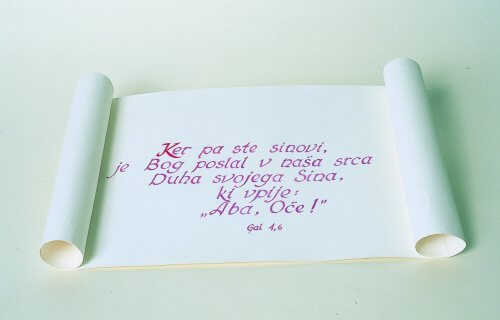 Ker pa ste sinovi,
je Bog poslal v naša srca
Duha svojega Sina,
ki vpije:
„Aba, Oče!”
Gal 4,6